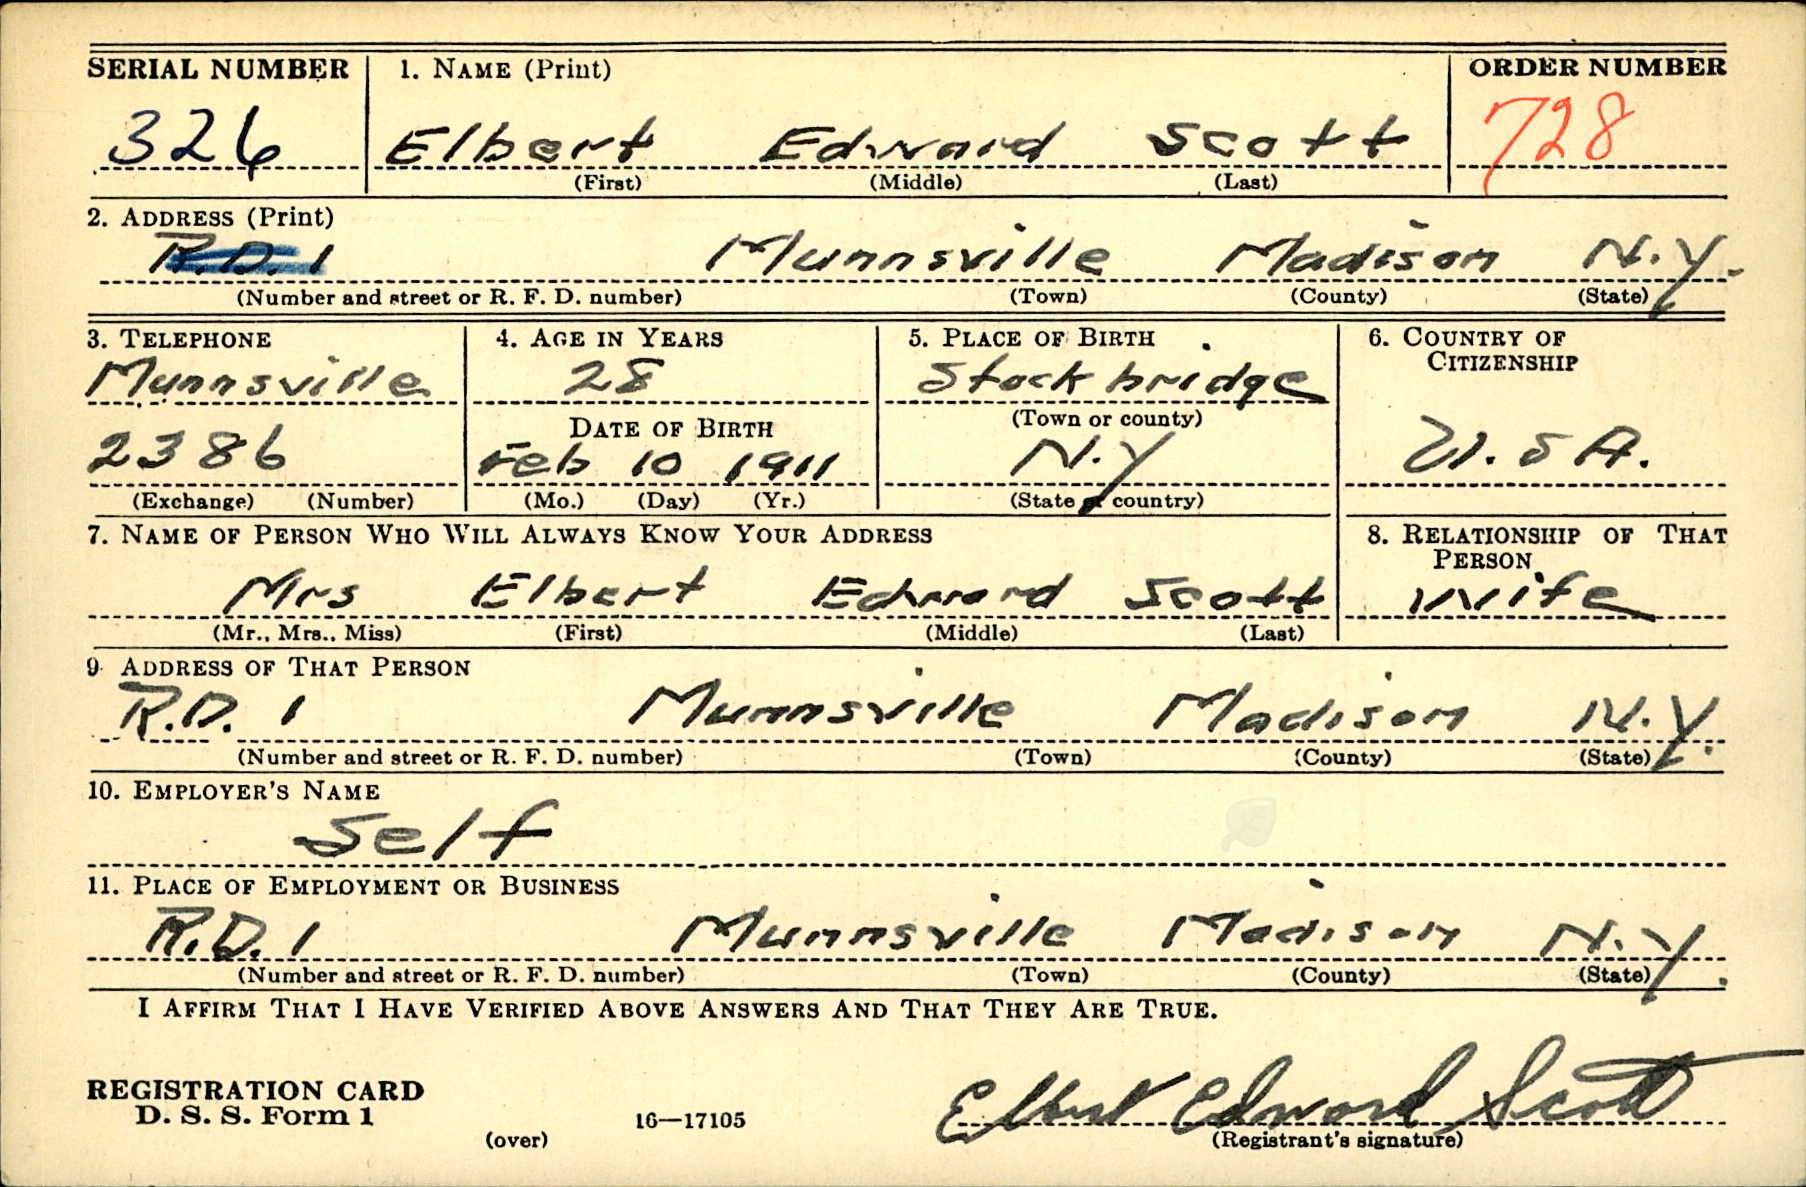 SERIAL NUMBER 1. NAME (Print) ORDER NUMBER
326 Elbert Edward Scott 728
(First) (Middle) (Last)
2. ADDRESS (Print)
R.D. 1 Munnsville Madison N.Y.
(Number and street or R. F. D. number) (Town) (County) (State)
3. TELEPHONE 4. AGE IN YEARS 5. PLACE OF BIRTH 6. COUNTRY OF
CITIZENSHIP
Munnsville 28 Stockbridge
DATE OF BIRTH (Town or county)
2386 Feb 10 1911 N.Y U.S A.
(Exchange) (Number) (Mo.) (Day) (Yr.) (State or country)
7. NAME OF PERSON WHO WILL ALWAYS KNOW YOUR ADDRESS 8. RELATIONSHIP OF THAT
PERSON
Mrs Elbert Edward Scott wife
(Mr., Mrs., Miss) (First) (Middle) (Last)
9. ADDRESS OF THAT PERSON
R.D. 1 Munnsville Madison N.Y.
(Number and street or R. F. D. number) (Town) (County) (State)
10. EMPLOYER'S NAME
Self
11. PLACE OF EMPLOYMENT OR BUSINESS
R.D. 1 Munnsville Madison N.Y.
(Number and street or R. F. D. number) (Town) (County) (State)
I AFFIRM THAT I HAVE VERIFIED ABOVE ANSWERS AND THAT THEY ARE TRUE.
REGISTRATION CARD
D. S. S. Form 1 16—17105 Elbert Edward Scott
(over) (Registrant's signature)